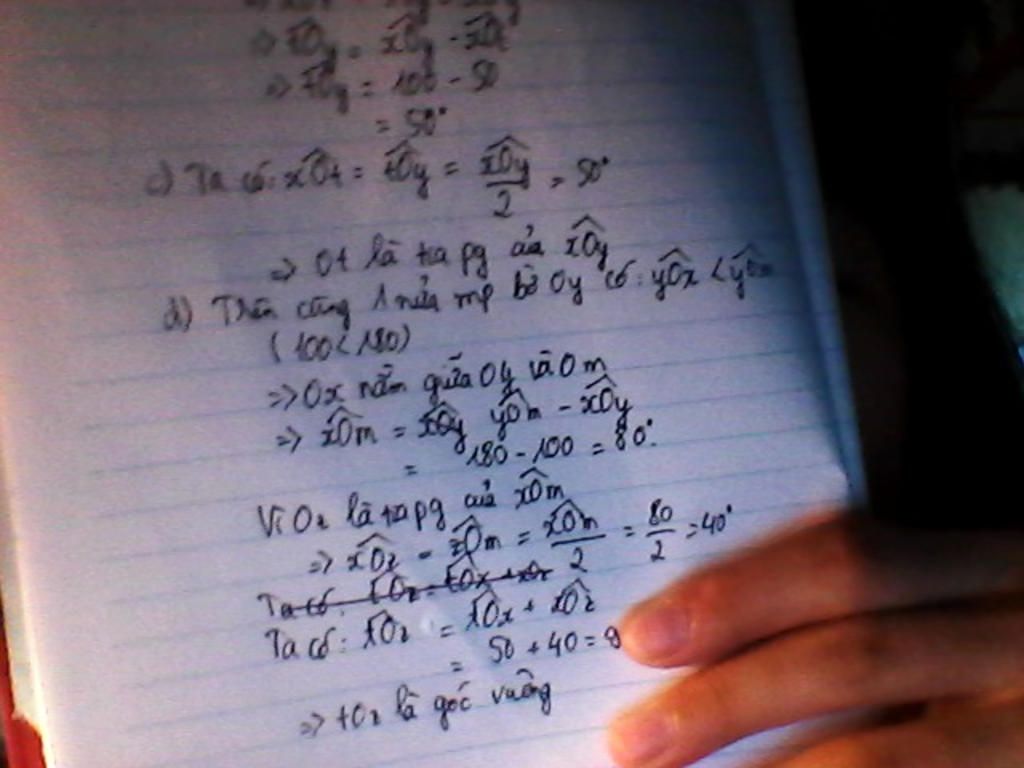 => tOy = xOy - xOt
=> tOy = 100 - 50
= 50°
c) Ta có: xOt = tOy = xOy/2 = 50°
=> Ot là tia pg của xOy
d) Trên cùng 1 nửa mp bờ Oy có: yOx < yOm
(100 < 180)
=> Ox nằm giữa Oy và Om
=> xOm = yOm - xOy
= 180 - 100 = 80°.
Vì Oz là tia pg của xOm
=> xOz = zOm = xOm/2 = 80/2 = 40°
Ta có: tOz = tOx + xOz
Ta có: tOz = tOx + xOz
= 50 + 40 = 9
=> tOz là góc vuông